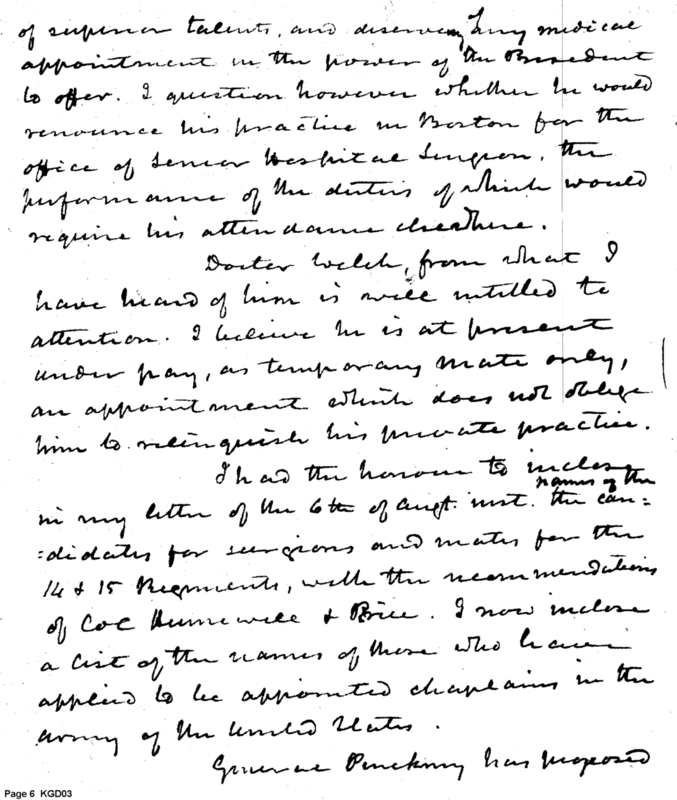 of superior talents, and deserving any medical
appointment in the power of the President
to offer. I question however whether he would
renounce his practice in Boston for the
office of Senior Hospital Surgeon, the
performance of the duties of which would
require his attendance elsewhere.
Doctor Welch, from what I
have heard of him is well intitled to
attention. I believe he is at present
under pay, as temporary mate only,
an appointment which does not oblige
him to relinquish his private practice.
I had the honour to inclose
names of the
in my letter of the 6th of Augt. inst. the can=
=didates for surgeons and mates for the
14 & 15 Regiments, with the recommendations
of Col Hunewell & Brice. I now inclose
a list of the names of those who have
applied to be appointed chaplains in the
army of the United States.
General Pinckney has proposed
Page 6 KGD03